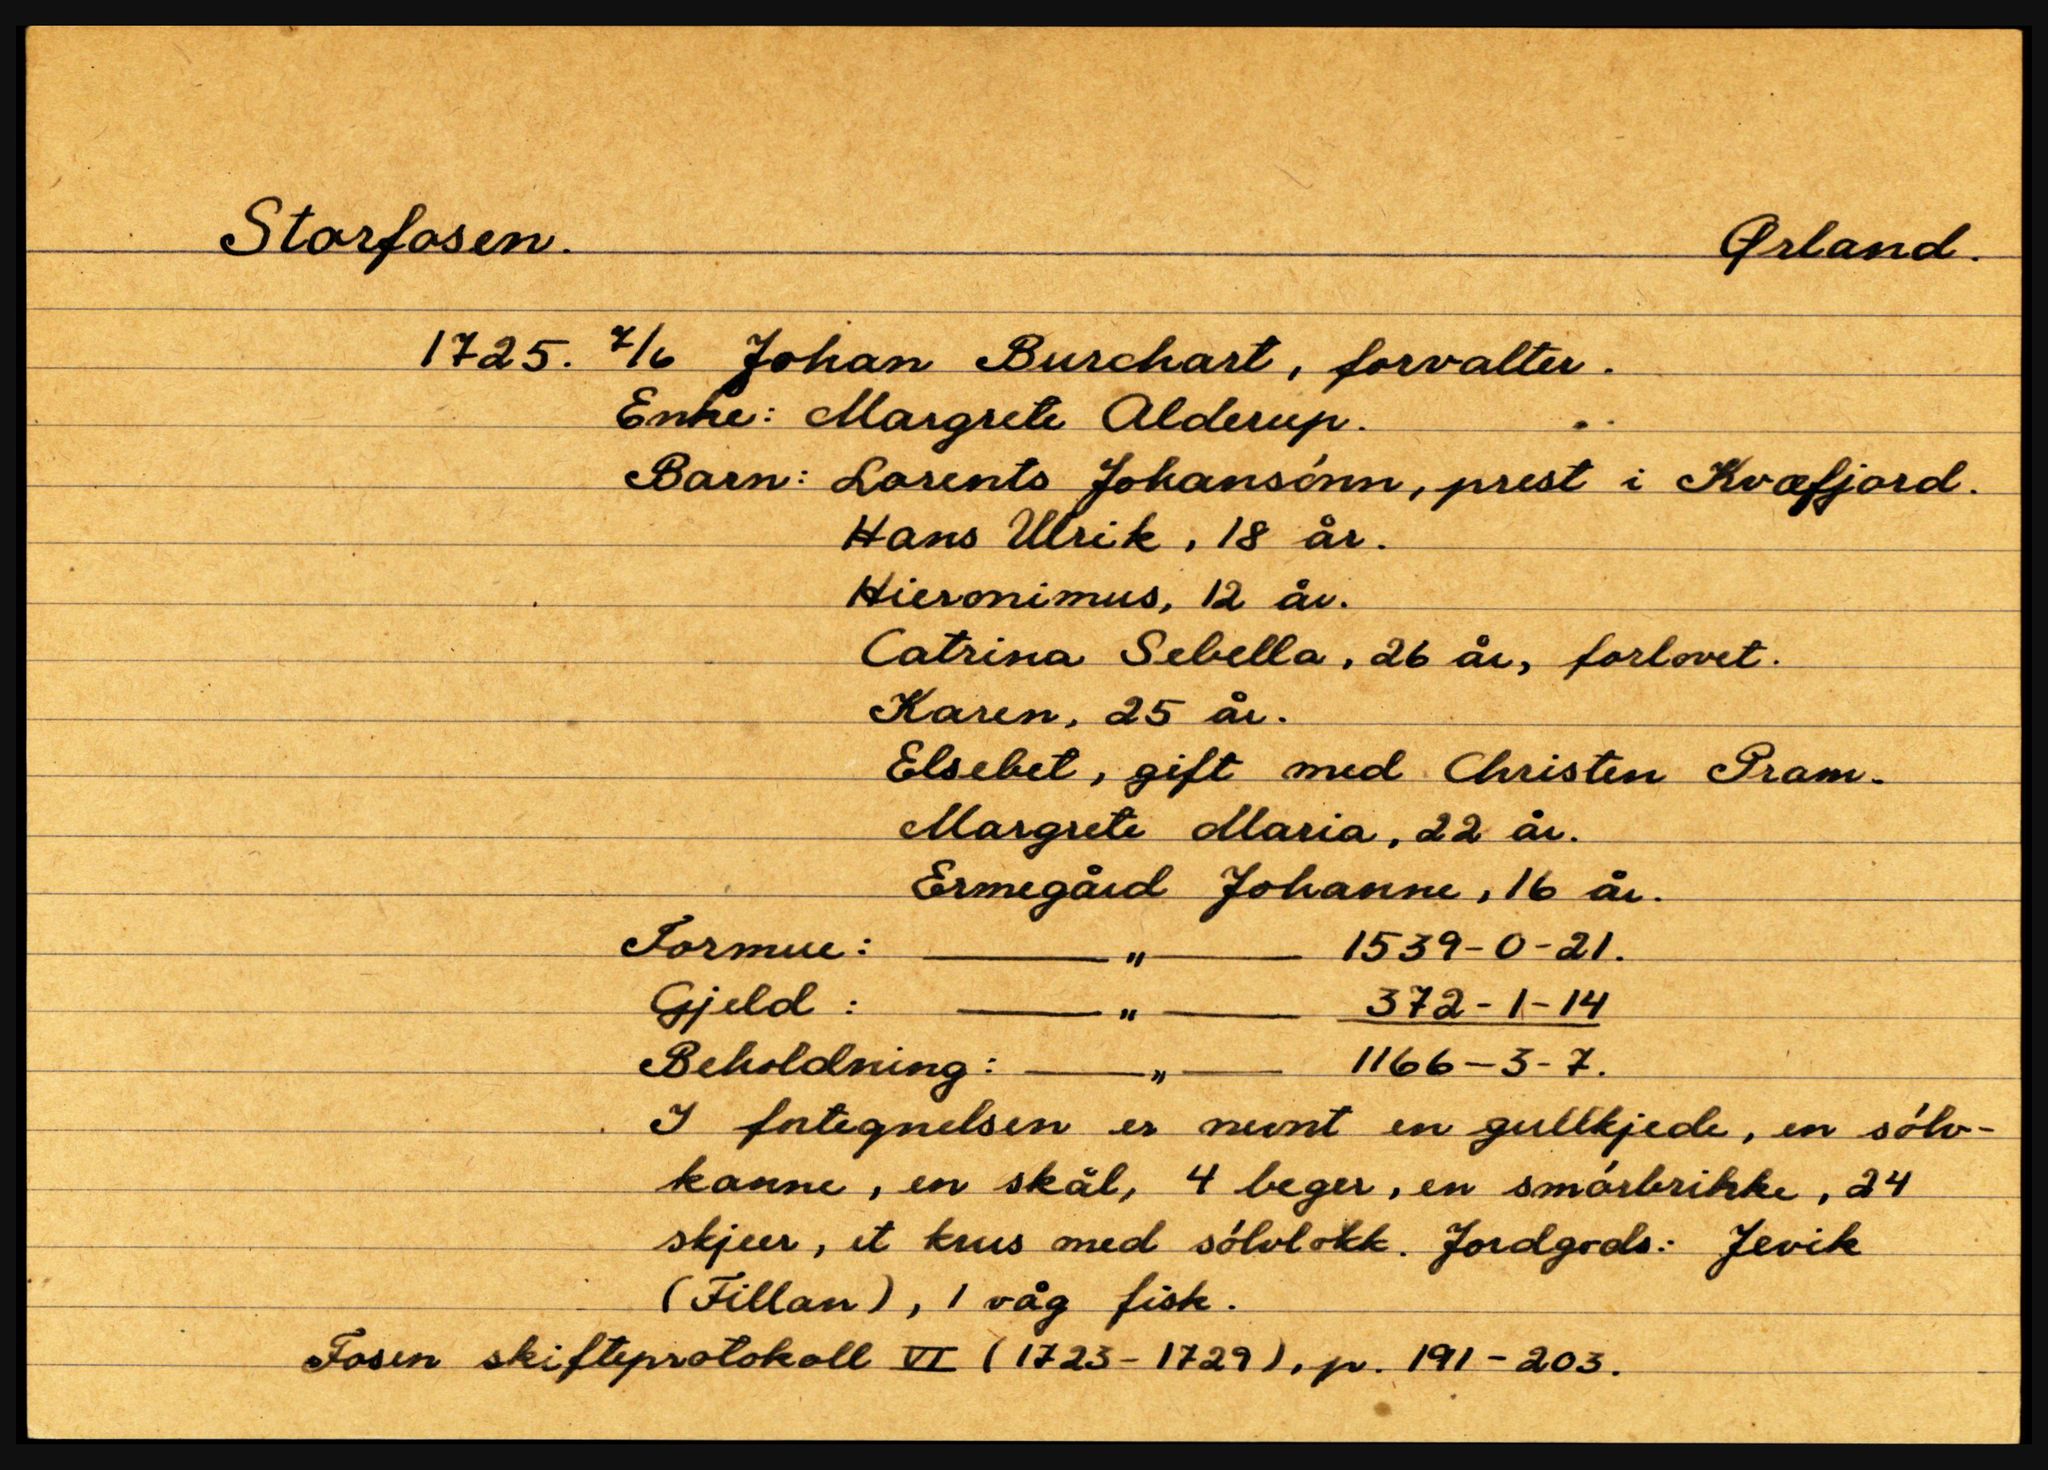 Storfosen. Ørland.
1725. 7/6 Johan Burchart, forvalter.
Enke: Margrete Alderup.
Barn: Lorents Johansónn, prest i Kvæfjord.
Hans Ulrik, 18 år.
Hieronimus, 12 år.
Catrina Sebella, 26 år, forlovet.
Karen, 25 år.
Elsebet, gift med Christen Pram.
Margrete Maria, 22 år.
Ermegård Johanne, 16 år.
Formue: —— " —— 1539-0-21.
Gjeld : —— " —— 372-1-14
Beholdning: —— " —— 1166-3-7.
I fortegnelsen er nevnt en gullkjede, en sólv-
kanne, en skål, 4 beger, en smórbrikke, 24
skjeer, et krus med sólvlokk. Jordgods: Jevik
(Fillan), 1 våg fisk.
Fosen skifteprotokoll VI (1723-1729), p. 191-203.